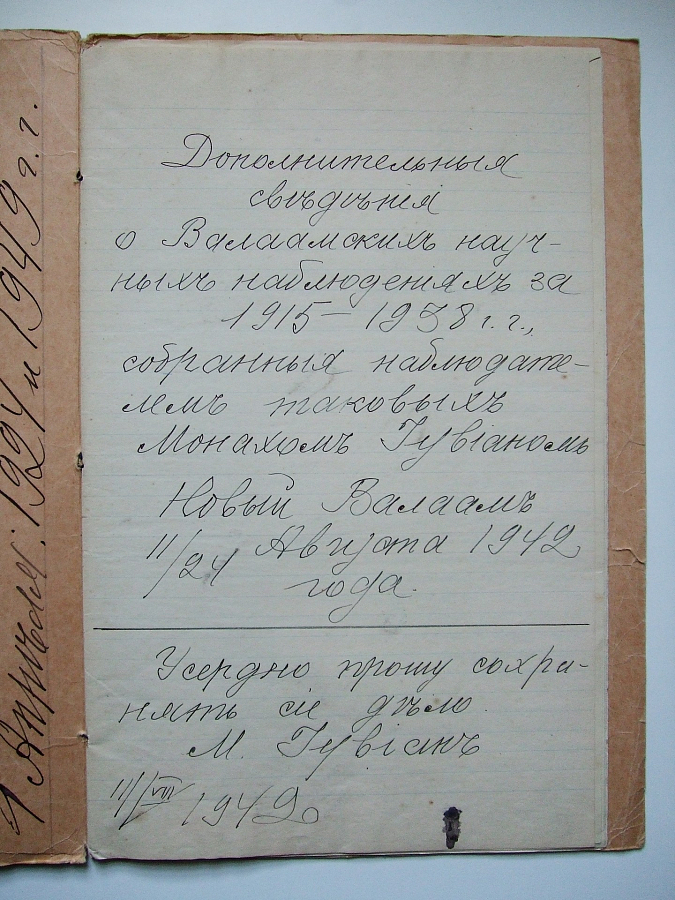 Дополнительныя
свѣдѣнія
о Валаамскихъ науч-
ныхъ наблюденіяхъ за
1915 – 1938 г. г.,
собранныя наблюдате-
лемъ таковыхъ
Монахомъ Іувіаномъ
Новый Валаамъ
11/24 Августа 1942
года.
Усердно прошу сохра-
нять сіе дѣло.
М. Іувіанъ
11/VIII 1942
1924 и 1949 г. г.